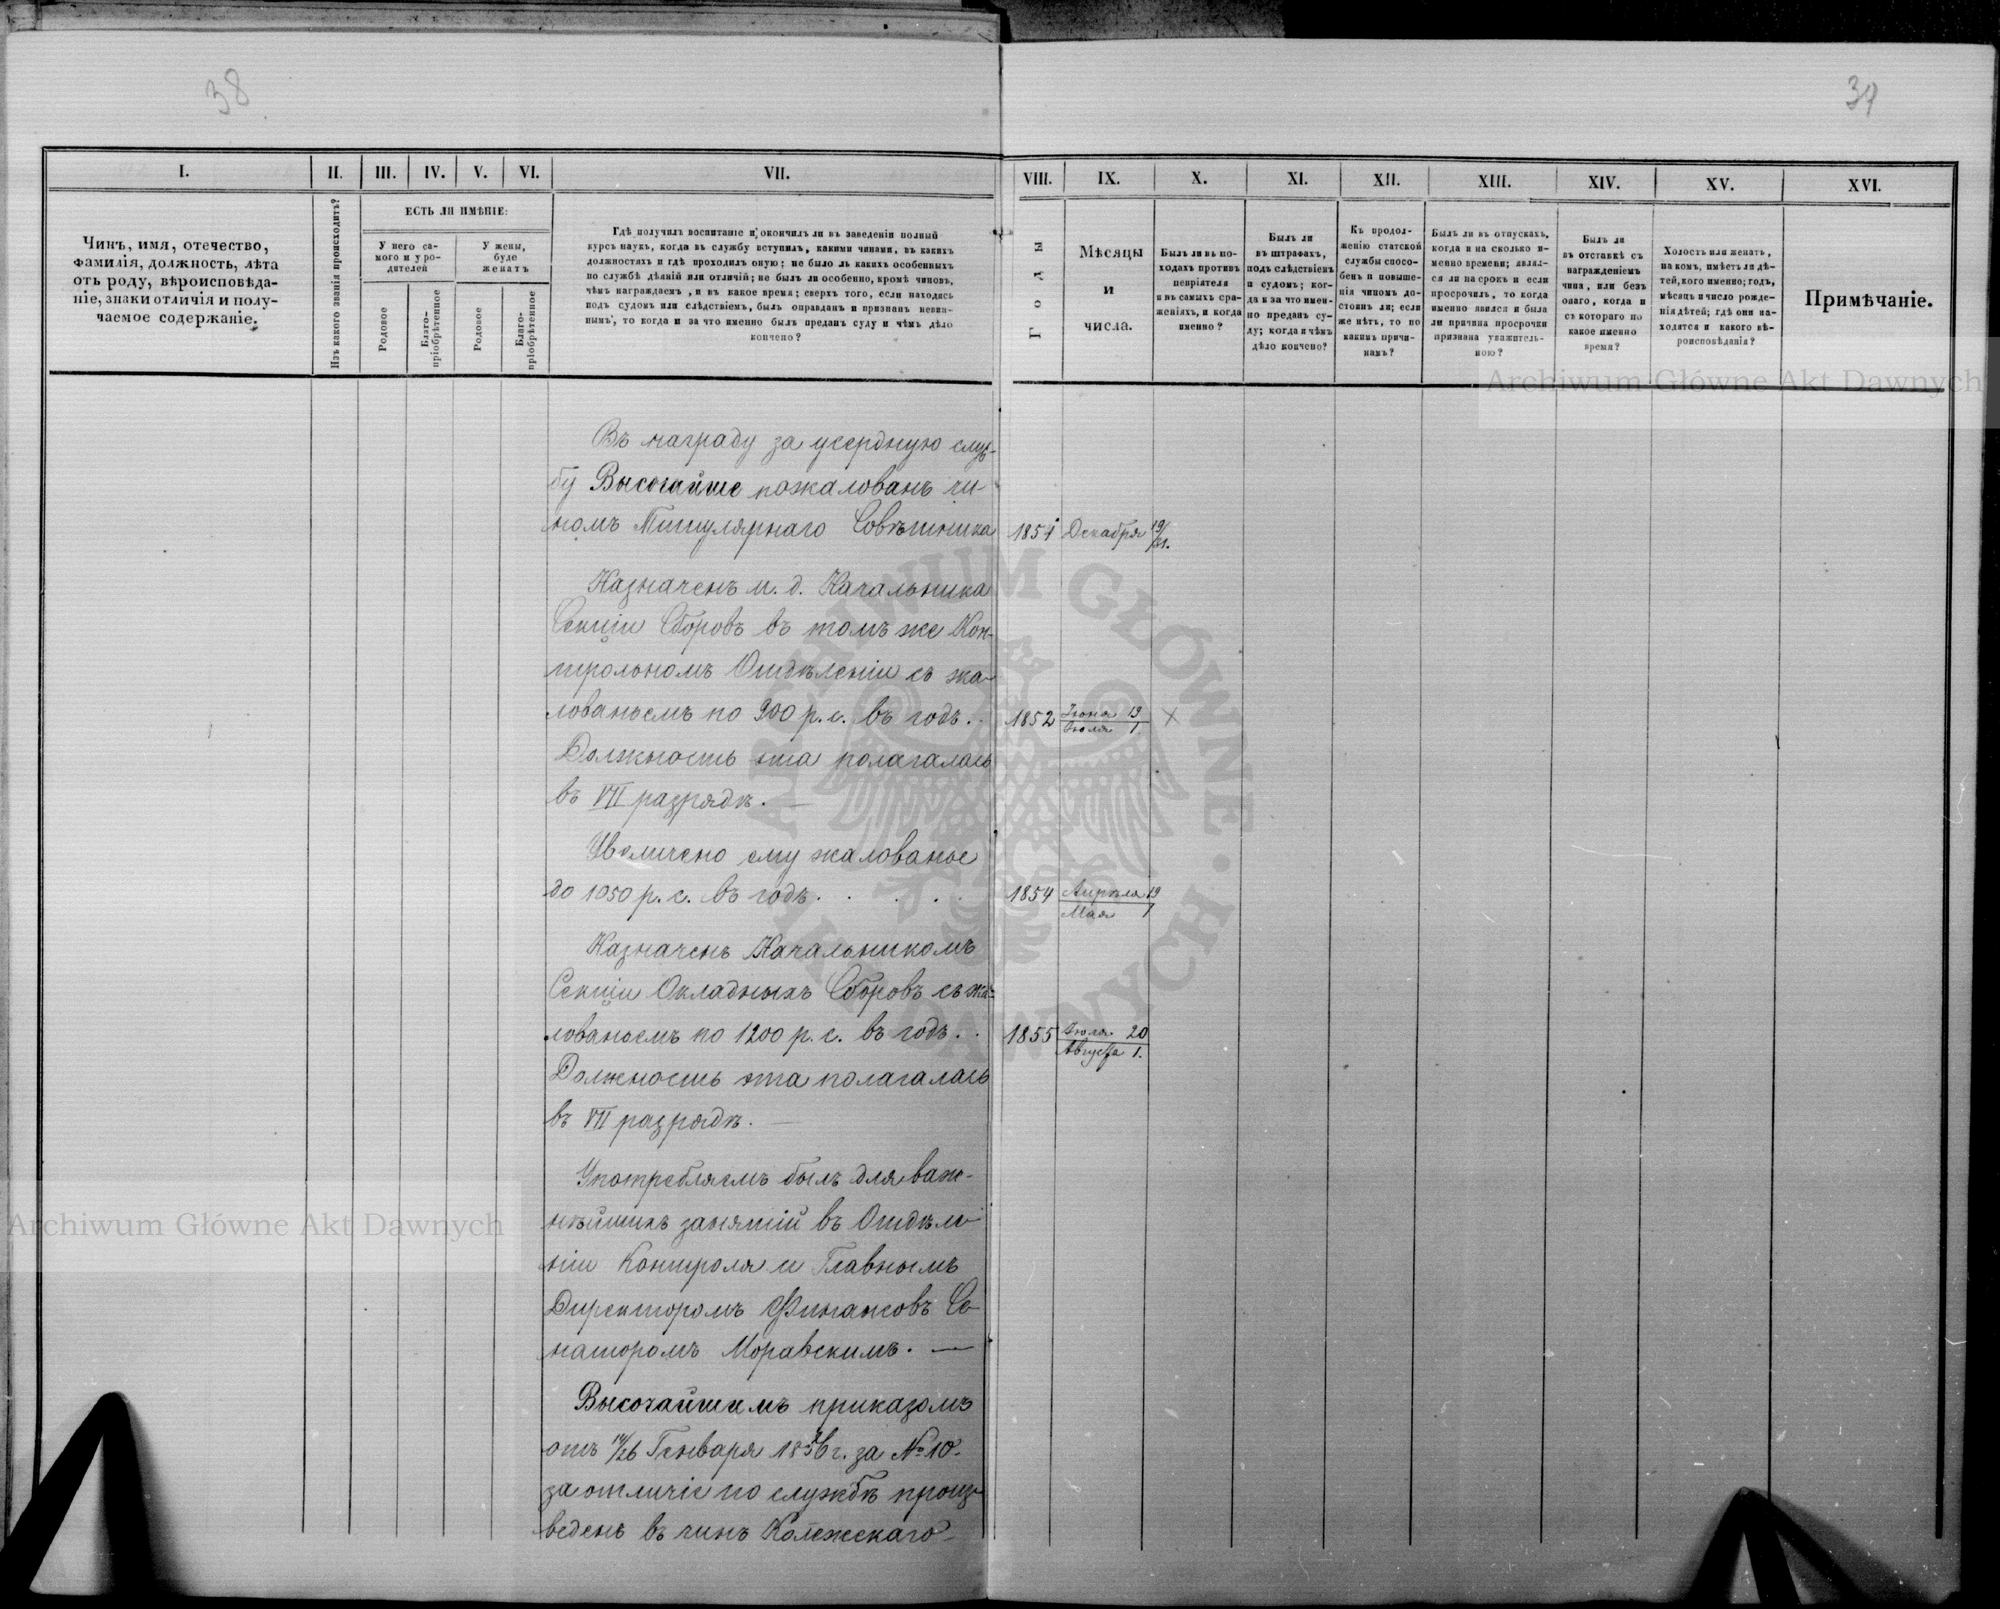 38
39
I.
II.
III.
IV.
V.
VI.
VII.
VIII.
IX.
X.
XI.
XII.
XIII.
XIV.
XV.
XVI.
Чинъ, имя, отечество,
фамилія, должность, лѣта
отъ роду, вѣроисповѣда-
ніе, знаки отличія и полу-
чаемое содержаніе.
Изъ какого званія происходитъ?
ЕСТЬ ЛИ ИМѢНІЕ:
У него са-
мого и у ро-
дителей
У жены,
буде
женатъ
Родовое
Благо-
пріобрѣтенное
Родовое
Благо-
пріобрѣтенное
Гдѣ получилъ воспитаніе и окончилъ ли въ заведеніи полный
курсъ наукъ, когда въ службу вступилъ, какими чинами, въ какихъ
должностяхъ и гдѣ проходилъ оную; не было ль какихъ особенныхъ
по службѣ дѣяній или отличій; не былъ ли особенно, кромѣ чиновъ,
чѣмъ награждаемъ, и въ какое время; сверхъ того, если находясь
подъ судомъ или слѣдствіемъ, былъ оправданъ и признанъ невин-
нымъ, то когда и за что именно былъ преданъ суду и чѣмъ дѣло
кончено?
Годы
Мѣсяцы
и
числа.
Былъ ли въ по-
ходахъ противъ
непріятеля
и въ самыхъ сра-
женіяхъ, и когда
именно?
Былъ ли
въ штрафахъ,
подъ слѣдствіемъ
и судомъ; ког-
да и за что имен-
но преданъ су-
ду; когда и чѣмъ
дѣло кончено?
Къ продол-
женію статской
службы спосо-
бенъ и повыше-
нія чиномъ до-
стоинъ ли; если
же нѣтъ, то по
какимъ причи-
намъ?
Былъ ли въ отпускахъ,
когда и на сколько и-
менно времени; являл-
ся ли на срокъ и если
просрочилъ, то когда
именно явился и была
ли причина просрочки
признана уважитель-
ною?
Былъ ли
въ отставкѣ съ
награжденіемъ
чина, или безъ
онаго, когда и
съ котораго по
какое именно
время?
Холостъ или женатъ,
на комъ, имѣетъ ли дѣ-
тей, кого именно; годъ,
мѣсяцъ и число рожде-
нія дѣтей; гдѣ они на-
ходятся и какого вѣ-
роисповѣданія?
Примѣчаніе.
Въ награду за усердную служ-
бу Высочайше пожалованъ чи-
номъ Титулярнаго Совѣтника 1851 Декабря 19/31.
Назначенъ и. д. Начальника
Секціи Сборовъ въ томъ же Кон-
трольномъ Отдѣленіи съ жа-
лованьемъ по 900 р. с. въ годъ. . 1852 Іюня 19 / Іюля 1. ×
Должность эта полагалась
въ VII разрядѣ. —
Увеличено ему жалованье
до 1050 р. с. въ годъ. . . . . 1854 Апрѣля 19 / Мая 1
Назначенъ Начальникомъ
Секціи Окладныхъ Сборовъ съ жа-
лованьемъ по 1200 р. с. въ годъ. . 1855 Іюля 20 / Августа 1.
Должность эта полагалась
въ VII разрядѣ. —
Употребляемъ былъ для важ-
нѣйшихъ занятій въ Отдѣле-
ніи Контроля и Главнымъ
Директоромъ Финансовъ Се-
наторомъ Моравскимъ. —
Высочайшимъ приказомъ
отъ 14/26 Генваря 1856 г. за № 10.
за отличіе по службѣ произ-
веденъ въ чинъ Коллежскаго
Archiwum Główne Akt Dawnych
Archiwum Główne Akt Dawnych
ARCHIWUM GŁÓWNE AKT DAWNYCH